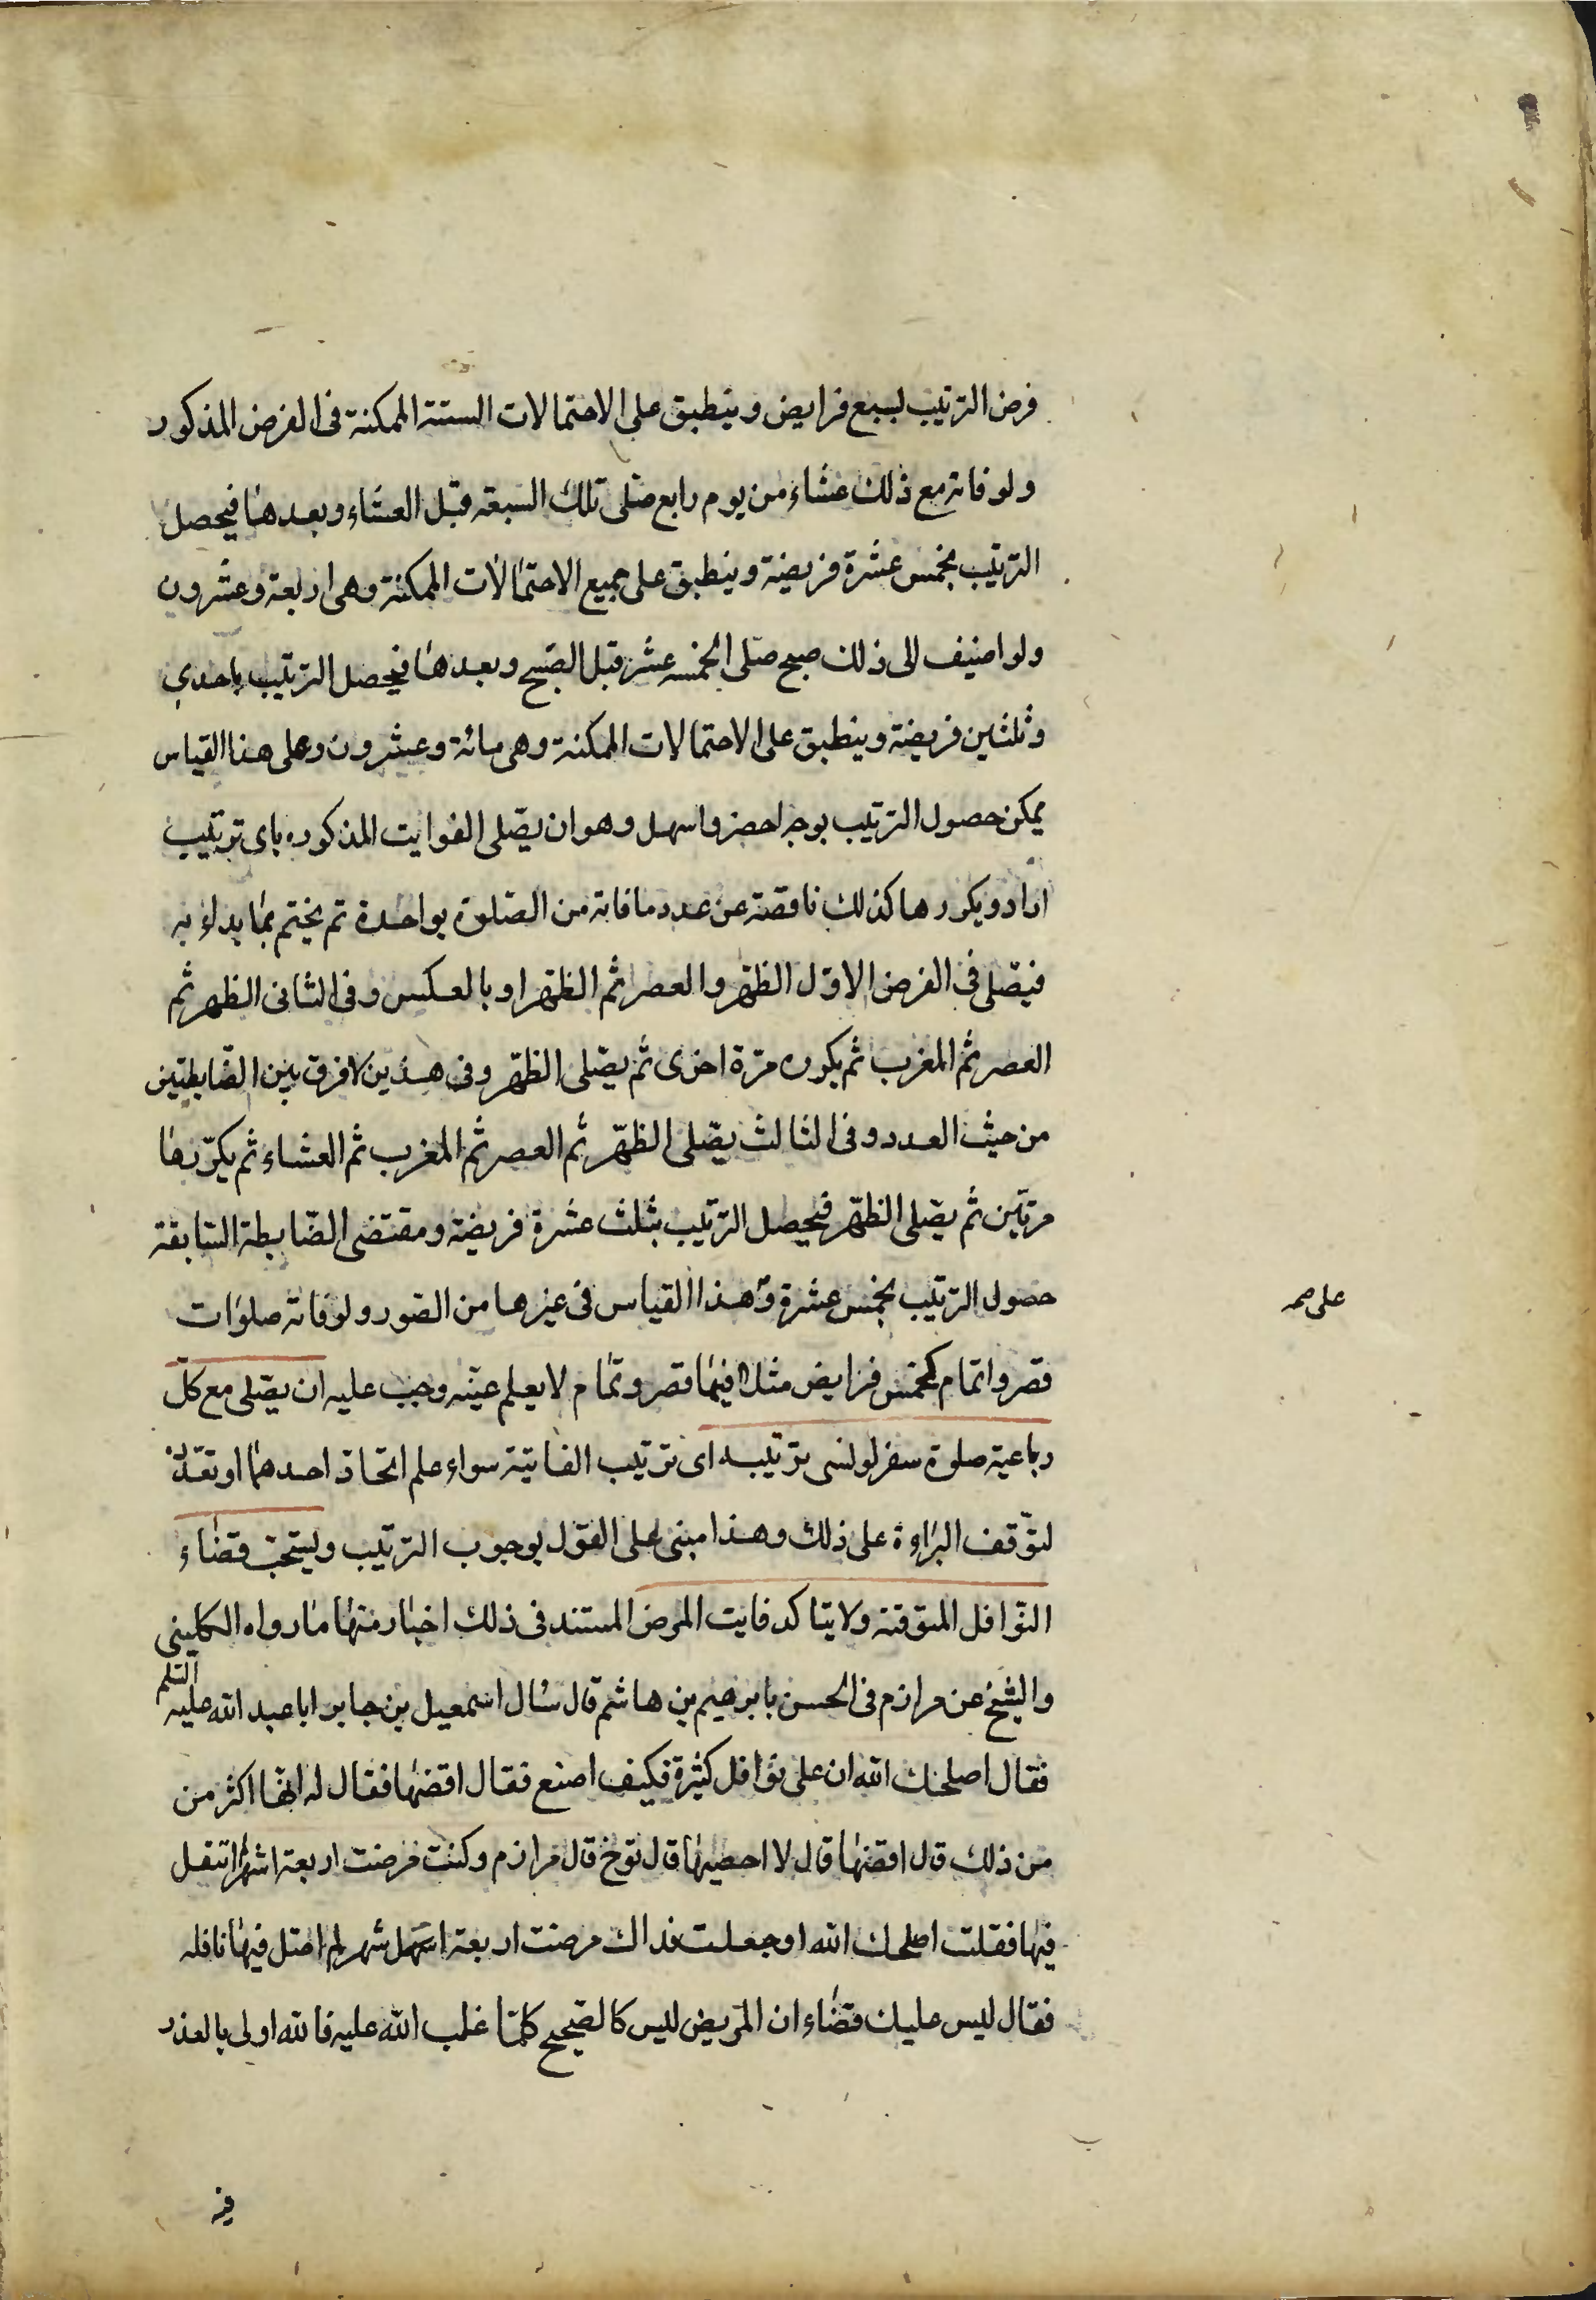 فرض الترتيب لسبع فرايض وينطبق على الاحتمالات الستة الممكنة فى الفرض المذكور
ولو فاته مع ذلك عشاء من يوم رابع صلى تلك السبعة قبل العشاء وبعدها فيحصل
الترتيب بخمس عشرة فريضة وينطبق على جميع الاحتمالات الممكنة وهى اربعة وعشرون
ولو اضيف الى ذلك صبح صلى الخمسه عشر قبل الصبح وبعدها فيحصل الترتيب باحدى
وثلثين فريضة وينطبق على الاحتمالات الممكنة وهى مائة وعشرون وعلى هذا القياس
يمكن حصول الترتيب بوجه اخصر واسهل وهو ان يصلى الفوايت المذكوره باى ترتيب
اراد ويكررها كذلك ناقصة عن عدد ما فاته من الصلوة بواحدة ثم يختم بما بداء به
فيصلى فى الفرض الاول الظهر والعصر ثم الظهر او بالعكس وفى الثانى الظهر ثم
العصر ثم المغرب ثم يكرره مرة اخرى ثم يصلى الظهر وفى هذين لا فرق بين الضابطتين
من حيث العدد وفى الثالث يصلى الظهر ثم العصر ثم المغرب ثم العشاء ثم يكررها
مرتين ثم يصلى الظهر فيحصل الترتيب بثلث عشرة فريضة ومقتضى الضابطة السابقة
حصول الترتيب بخمس عشرة و هذا القياس فى غيرها من الصور ولو فاته صلوات
على صح
قصر واتمام كخمس فرايض مثلا فيها قصر وتمام لا يعلم عينه وجب عليه ان يصلى مع كل
رباعية صلوة سفر لو نسى ترتيبه اى ترتيب الفائتة سواء علم اتحاد احدهما او تعدده
لتوقف البراءة على ذلك وهذا مبنى على القول بوجوب الترتيب ويستحب قضاء
النوافل الموقتة ولا يتاكد فايت المرض المستند فى ذلك اخبار منها ما رواه الكلينى
والشيخ عن مرازم فى الحسن بابرهيم بن هاشم قال سال اسمعيل بن جابر ابا عبد الله عليه السلم
فقال اصلحك الله ان على نوافل كثيرة فكيف اصنع فقال اقضها فقال له انها اكثر من
من ذلك قال اقضها قال لا احصيها قال توخ قال مرازم وكنت مرضت اربعة اشهر اتنفل
فيها فقلت اصلحك الله او جعلت فداك مرضت اربعة اشهر لم اصل فيها نافله
فقال ليس عليك قضاء ان المريض ليس كالصحيح كلما غلب الله عليه فالله اولى بالعذر
فيه